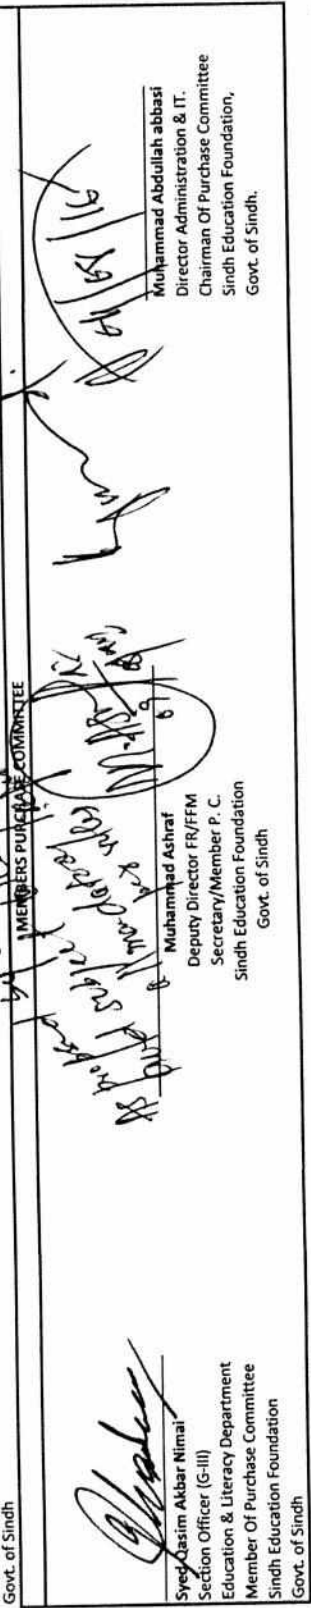 Govt. of Sindh
MEMBERS PURCHASE COMMITTEE
As proposed
and subject
rules
Syed Qasim Akbar Nimai
Section Officer (G-III)
Education & Literacy Department
Member Of Purchase Committee
Sindh Education Foundation
Govt. of Sindh
Muhammad Ashraf
Deputy Director FR/FFM
Secretary/Member P. C.
Sindh Education Foundation
Govt. of Sindh
Muhammad Abdullah abbasi
Director Administration & IT.
Chairman Of Purchase Committee
Sindh Education Foundation,
Govt. of Sindh.